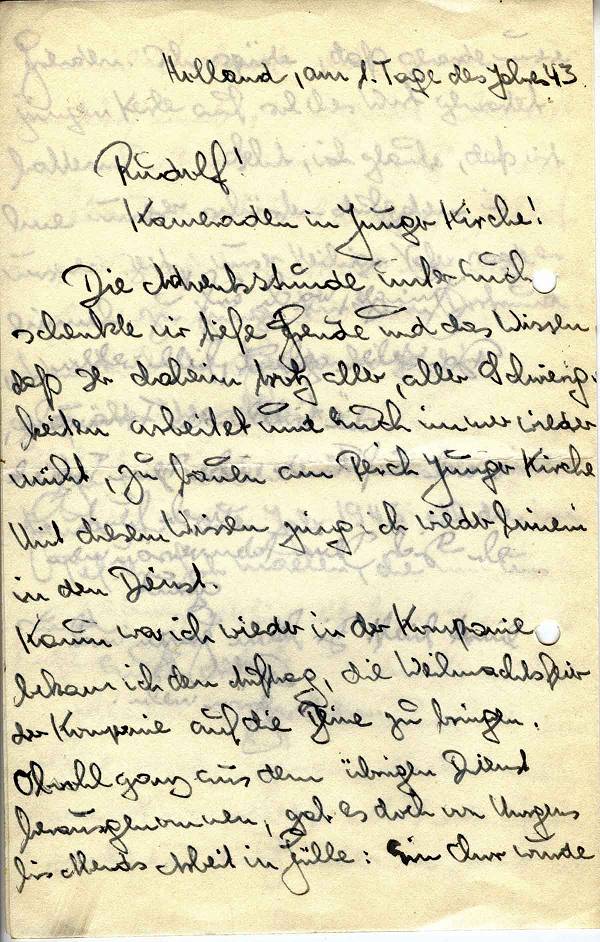 Holland, am 1. Tage des Jahres 43
Rudolf!
Kameraden in Junger Kirche!
Die Adventsstunde unter Euch
schenkte mir tiefe Freude und das Wissen,
daß Ihr daheim trotz aller, aller Schwierig-
keiten arbeitet und Euch immer wieder
müht, zu bauen am Reich Junger Kirche
Mit diesem Wissen ging ich wieder hinein
in den Dienst.
Kaum war ich wieder in der Kompanie
bekam ich den Auftrag, die Weihnachtsfeier
der Kompanie auf die Beine zu bringen.
Obwohl ganz aus dem übrigen Dienst
herausgenommen, gab es doch von Morgens
bis Abends Arbeit in Fülle: Ein Chor wurde